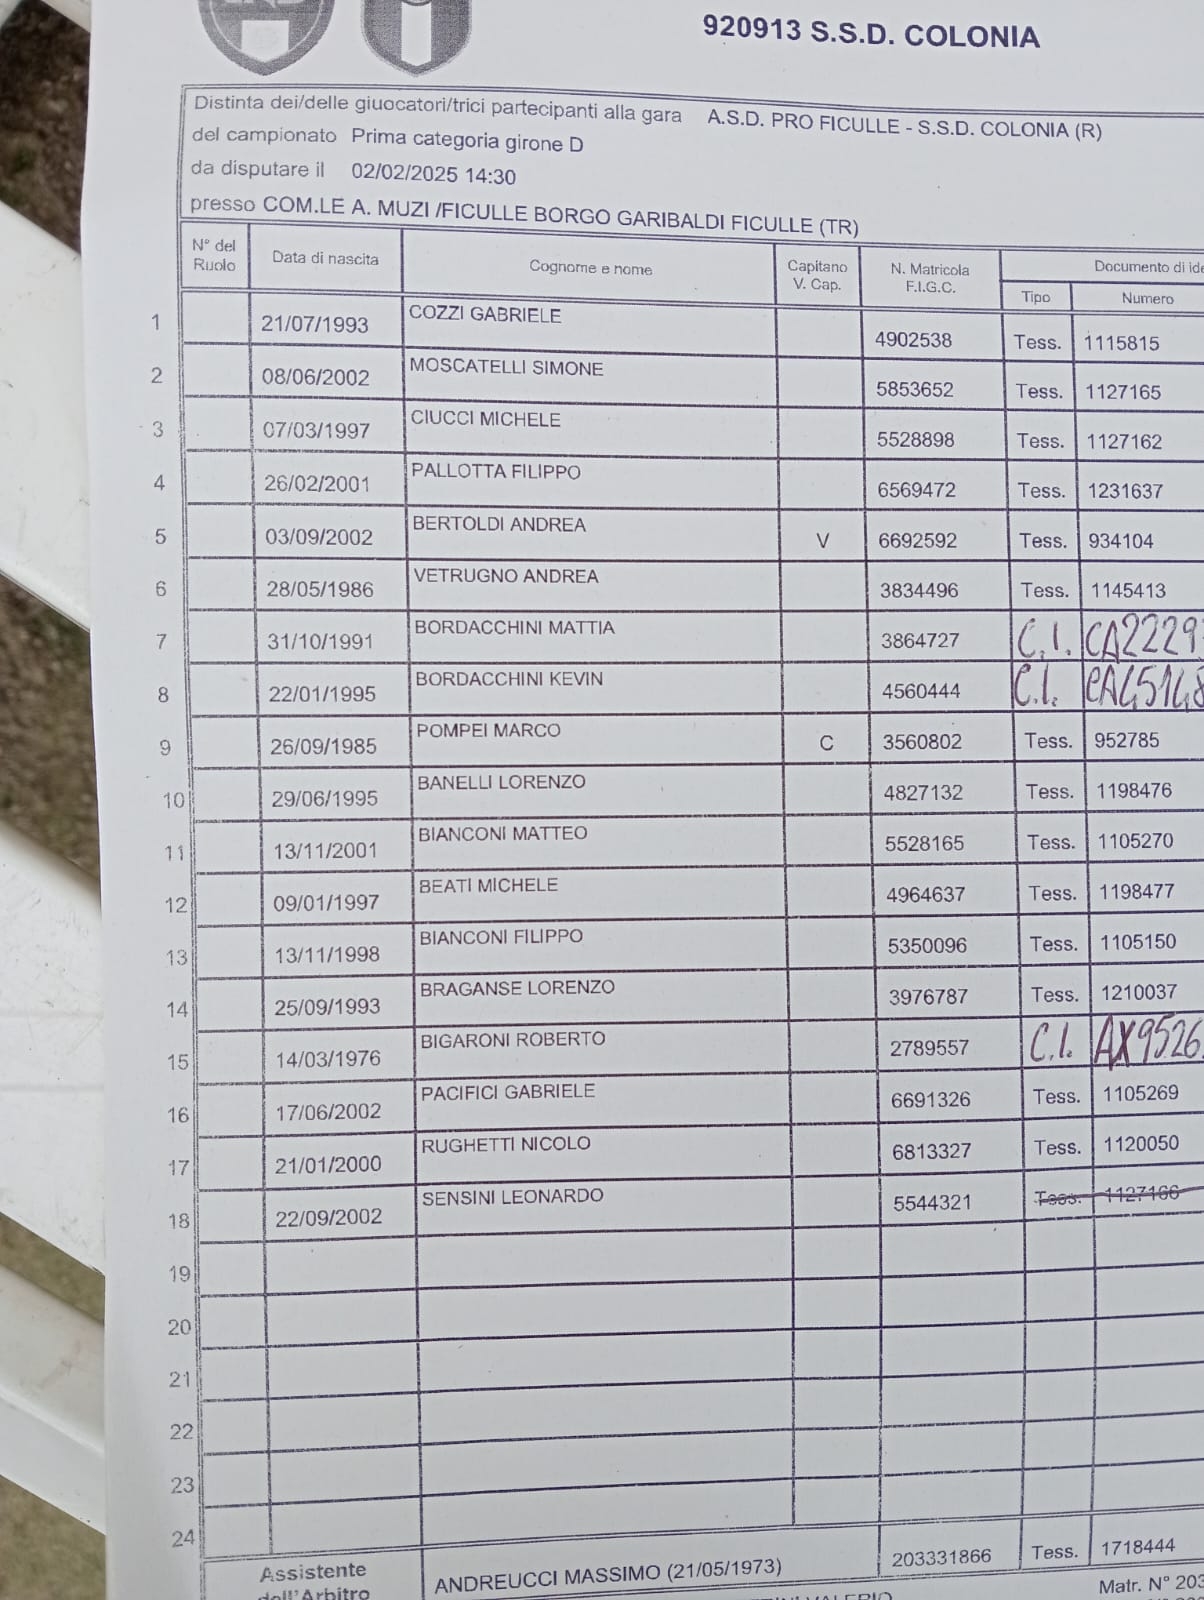 920913 S.S.D. COLONIA
Distinta dei/delle giuocatori/trici partecipanti alla gara A.S.D. PRO FICULLE - S.S.D. COLONIA (R)
del campionato Prima categoria girone D
da disputare il 02/02/2025 14:30
presso COM.LE A. MUZI /FICULLE BORGO GARIBALDI FICULLE (TR)
N° del Ruolo Data di nascita Cognome e nome Capitano V. Cap. N. Matricola F.I.G.C. Documento di ide
Tipo Numero
1 21/07/1993 COZZI GABRIELE 4902538 Tess. 1115815
2 08/06/2002 MOSCATELLI SIMONE 5853652 Tess. 1127165
3 07/03/1997 CIUCCI MICHELE 5528898 Tess. 1127162
4 26/02/2001 PALLOTTA FILIPPO 6569472 Tess. 1231637
5 03/09/2002 BERTOLDI ANDREA V 6692592 Tess. 934104
6 28/05/1986 VETRUGNO ANDREA 3834496 Tess. 1145413
7 31/10/1991 BORDACCHINI MATTIA 3864727 C.I. CA2229
8 22/01/1995 BORDACCHINI KEVIN 4560444 C.I. CA45148
9 26/09/1985 POMPEI MARCO C 3560802 Tess. 952785
10 29/06/1995 BANELLI LORENZO 4827132 Tess. 1198476
11 13/11/2001 BIANCONI MATTEO 5528165 Tess. 1105270
12 09/01/1997 BEATI MICHELE 4964637 Tess. 1198477
13 13/11/1998 BIANCONI FILIPPO 5350096 Tess. 1105150
14 25/09/1993 BRAGANSE LORENZO 3976787 Tess. 1210037
15 14/03/1976 BIGARONI ROBERTO 2789557 C.I. AX9526
16 17/06/2002 PACIFICI GABRIELE 6691326 Tess. 1105269
17 21/01/2000 RUGHETTI NICOLO 6813327 Tess. 1120050
18 22/09/2002 SENSINI LEONARDO 5544321 Tess. 1127166
19
20
21
22
23
24
Assistente dell'Arbitro ANDREUCCI MASSIMO (21/05/1973) 203331866 Tess. 1718444
VALERIO Matr. N° 203